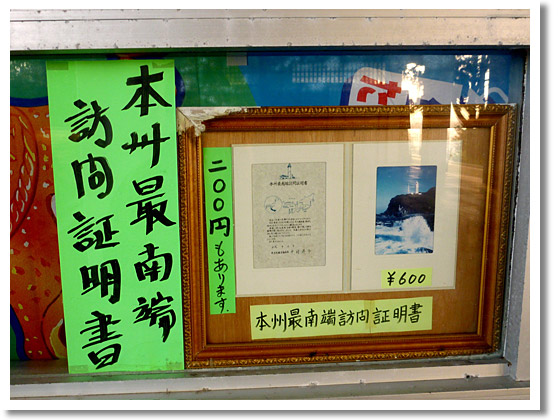 本州最南端
訪問証明書
二〇〇円もあります.
本州最南端訪問証明書
¥600
本州最南端訪問証明書